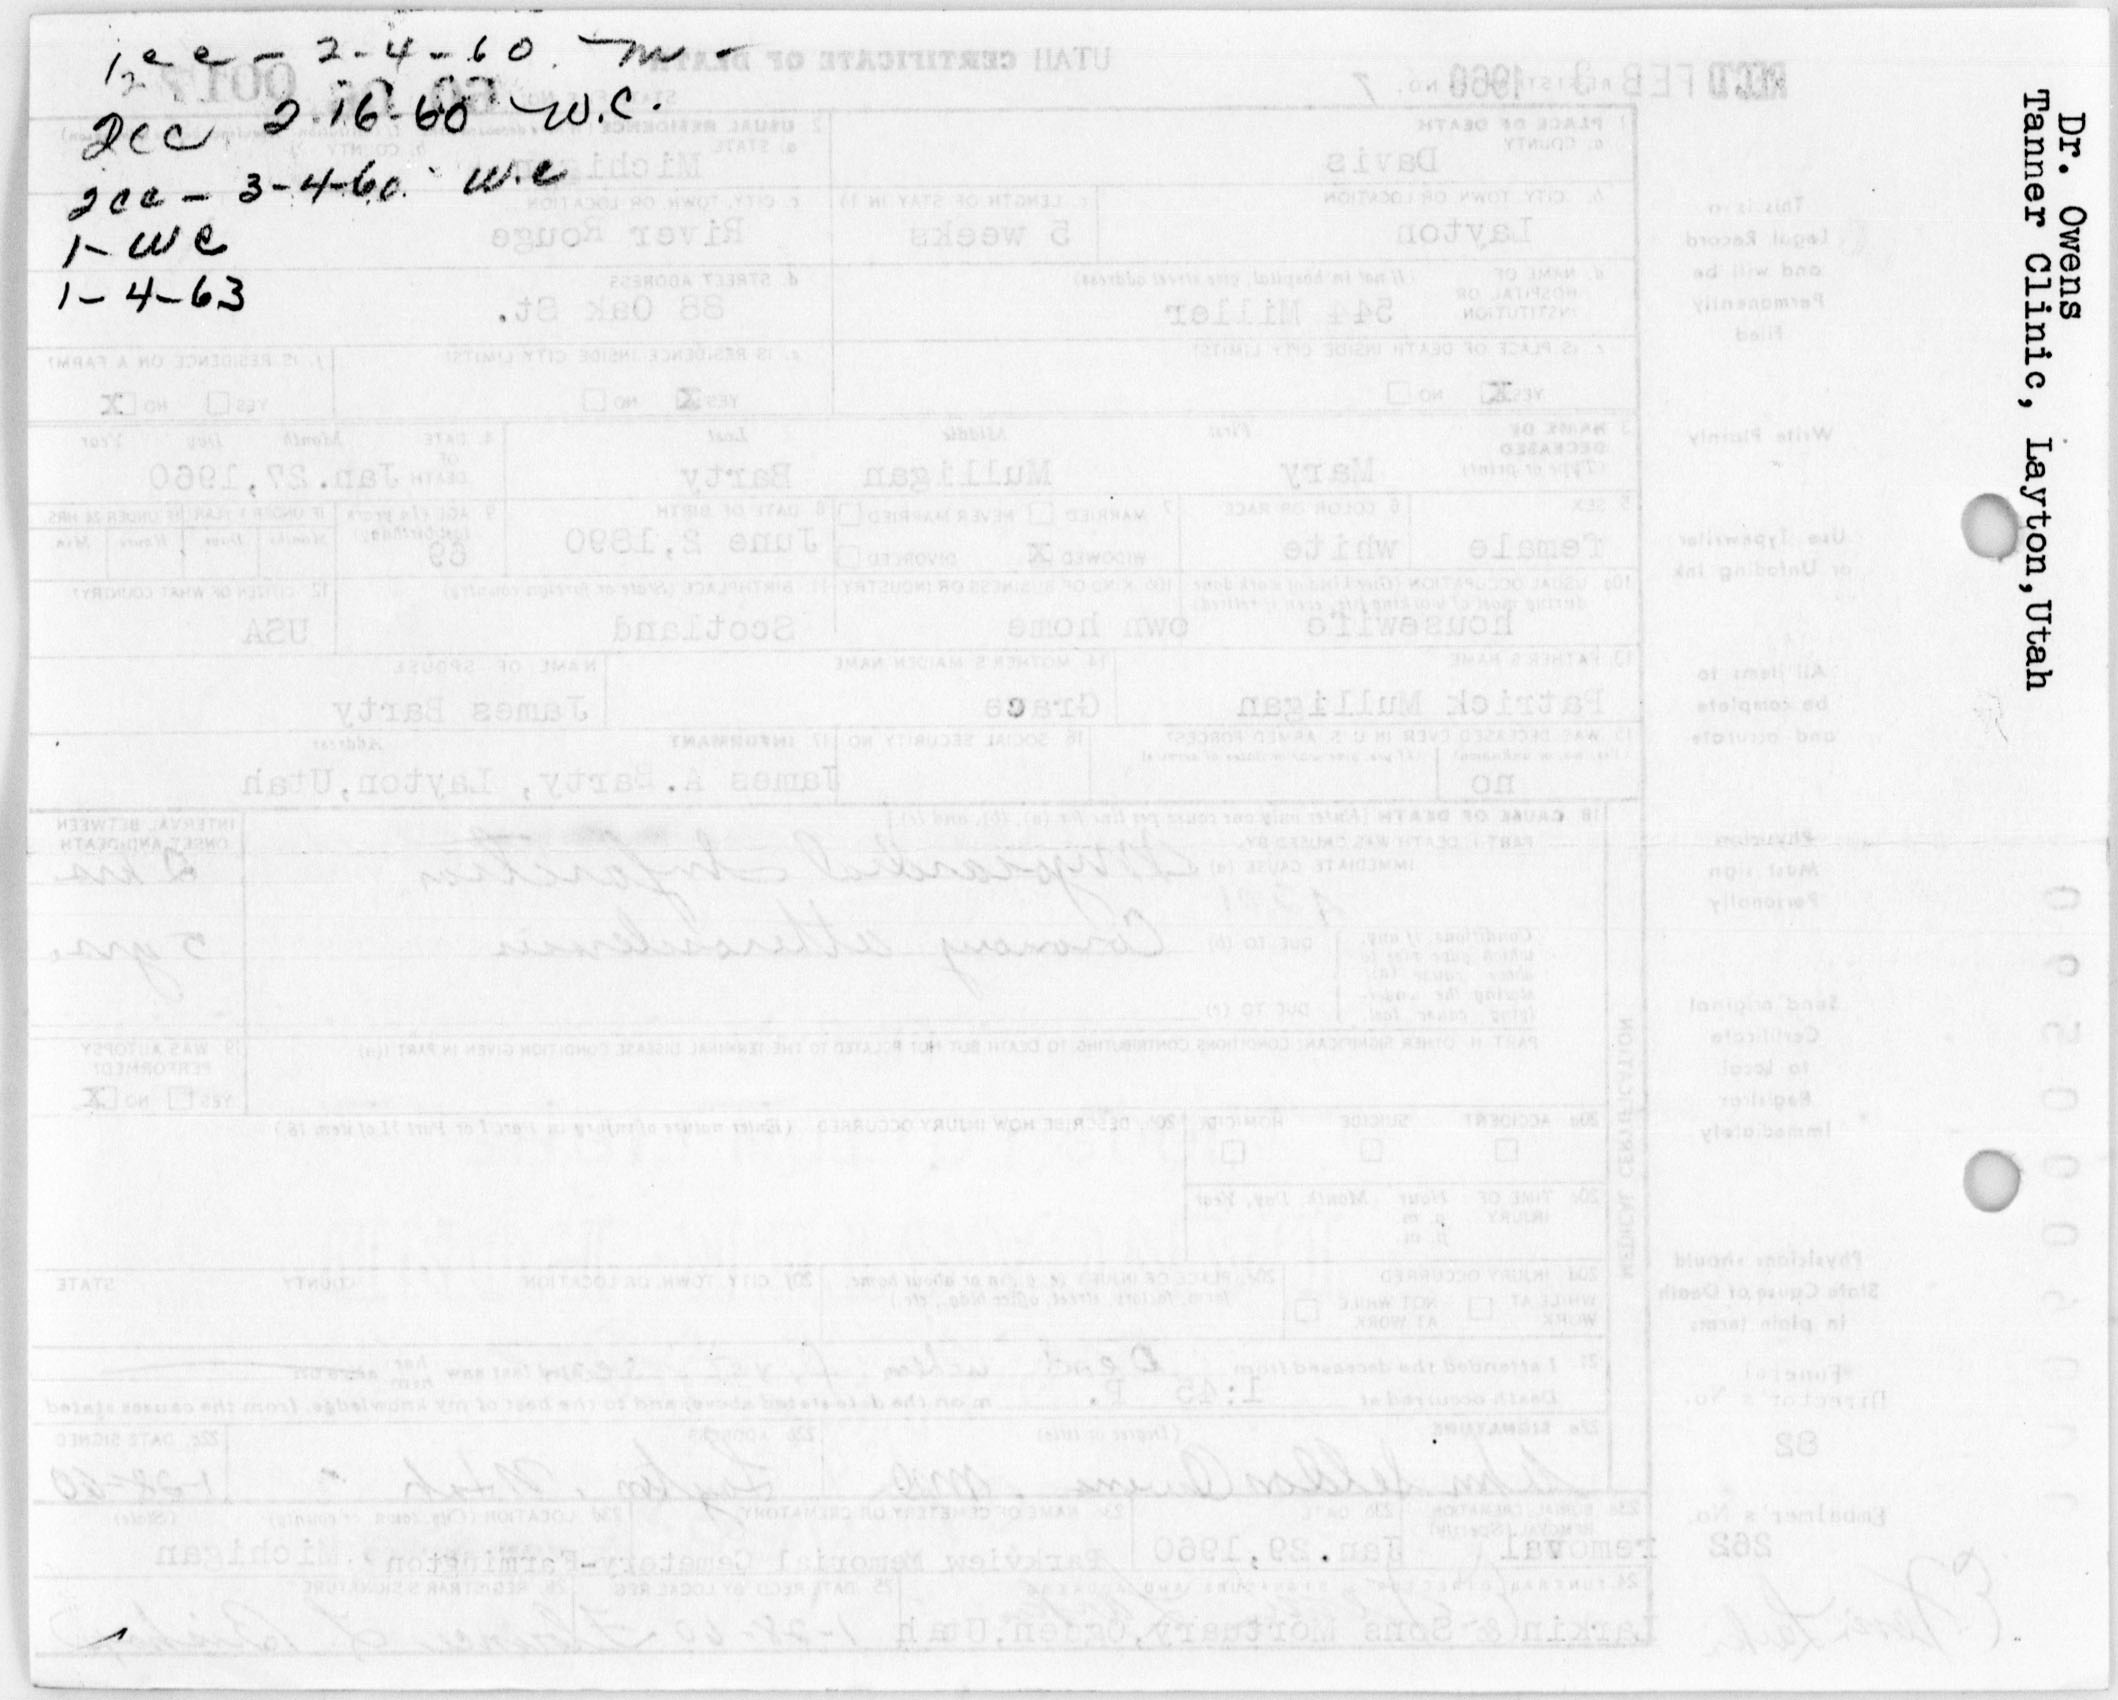 1cc - 2-4-60.
2cc 2-16-60 W.C.
2cc - 3-4-60. W.C
1- WC
1-4-63
Dr. Owens
Tanner Clinic, Layton, Utah
UTAH CERTIFICATE OF DEATH
REC'D FEB 3 1960
REGISTRAR'S NO. 7
1 PLACE OF DEATH
a. COUNTY
Davis
2 USUAL RESIDENCE
a. STATE
Michigan
b. COUNTY
b. CITY, TOWN OR LOCATION
Layton
c. LENGTH OF STAY IN 1b
5 weeks
c. CITY, TOWN, OR LOCATION
River Rouge
d. NAME OF HOSPITAL OR INSTITUTION
(If not in hospital, give street address)
544 Miller
d. STREET ADDRESS
88 Oak St.
e. IS PLACE OF DEATH INSIDE CITY LIMITS?
YES X NO
e. IS RESIDENCE INSIDE CITY LIMITS?
YES X NO
f. IS RESIDENCE ON A FARM?
YES NO X
3 NAME OF DECEASED
(Type or print)
First Middle Last
Mary Mulligan Barty
4. DATE OF DEATH
Month Day Year
Jan. 27, 1960
5 SEX
female
6 COLOR OR RACE
white
7 MARRIED NEVER MARRIED
WIDOWED X DIVORCED
8 DATE OF BIRTH
June 2, 1890
9 AGE (In years last birthday)
69
IF UNDER 1 YEAR
IF UNDER 24 HRS.
Months Days Hours Min
10a USUAL OCCUPATION (Give kind of work done during most of working life, even if retired)
housewife
10b KIND OF BUSINESS OR INDUSTRY
own home
11. BIRTHPLACE (State or foreign country)
Scotland
12 CITIZEN OF WHAT COUNTRY?
USA
13 FATHER'S NAME
Patrick Mulligan
14 MOTHER'S MAIDEN NAME
Grace
NAME OF SPOUSE
James Barty
15 WAS DECEASED EVER IN U.S. ARMED FORCES?
(Yes, no, or unknown) (If yes, give war or dates of service)
no
16 SOCIAL SECURITY NO
17. INFORMANT Address
James A. Barty, Layton, Utah
18 CAUSE OF DEATH [Enter only one cause per line for (a), (b), and (c).]
PART I. DEATH WAS CAUSED BY:
IMMEDIATE CAUSE (a)
Myocardial Infarction
INTERVAL BETWEEN ONSET AND DEATH
2 hrs.
Conditions, if any, which gave rise to above cause (a), stating the underlying cause last.
DUE TO (b)
Coronary atherosclerosis
5 yrs.
DUE TO (c)
PART II. OTHER SIGNIFICANT CONDITIONS CONTRIBUTING TO DEATH BUT NOT RELATED TO THE TERMINAL DISEASE CONDITION GIVEN IN PART I(a)
19. WAS AUTOPSY PERFORMED?
YES NO X
MEDICAL CERTIFICATION
20a ACCIDENT SUICIDE HOMICIDE
20b. DESCRIBE HOW INJURY OCCURRED (Enter nature of injury in Part I or Part II of item 18)
20c TIME OF INJURY Hour Month, Day, Year
a. m.
p. m.
20d INJURY OCCURRED
WHILE AT WORK NOT WHILE AT WORK
20e PLACE OF INJURY (e.g., in or about home, farm, factory, street, office bldg., etc.)
20f CITY, TOWN, OR LOCATION COUNTY STATE
21 I attended the deceased from Dead when first seen last saw her him alive on
Death occurred at 1:45 P. m on the date stated above; and to the best of my knowledge, from the causes stated
22a SIGNATURE (Degree or title)
Owens, MD
22b ADDRESS
Layton, Utah
22c. DATE SIGNED
1-28-60
23a BURIAL, CREMATION, REMOVAL (Specify)
removal
23b DATE
Jan. 29, 1960
23c NAME OF CEMETERY OR CREMATORY
Parkview Memorial Cemetery-Farmington, Michigan
23d LOCATION (City, town, or county) (State)
24. FUNERAL DIRECTOR'S SIGNATURE AND ADDRESS
Larkin & Sons Mortuary, Ogden, Utah
25 DATE REC'D BY LOCAL REG
1-28-60
26. REGISTRAR'S SIGNATURE
Florence
This is a
Legal Record
and will be
Permanently
Filed
Write Plainly
Use Typewriter
or Unfading Ink
All items to
be complete
and accurate
Physician
Must sign
Personally
Send original
Certificate
to Local
Registrar
Immediately
Physicians should
State Cause of Death
in plain terms
Funeral
Director's No.
82
Embalmer's No.
262